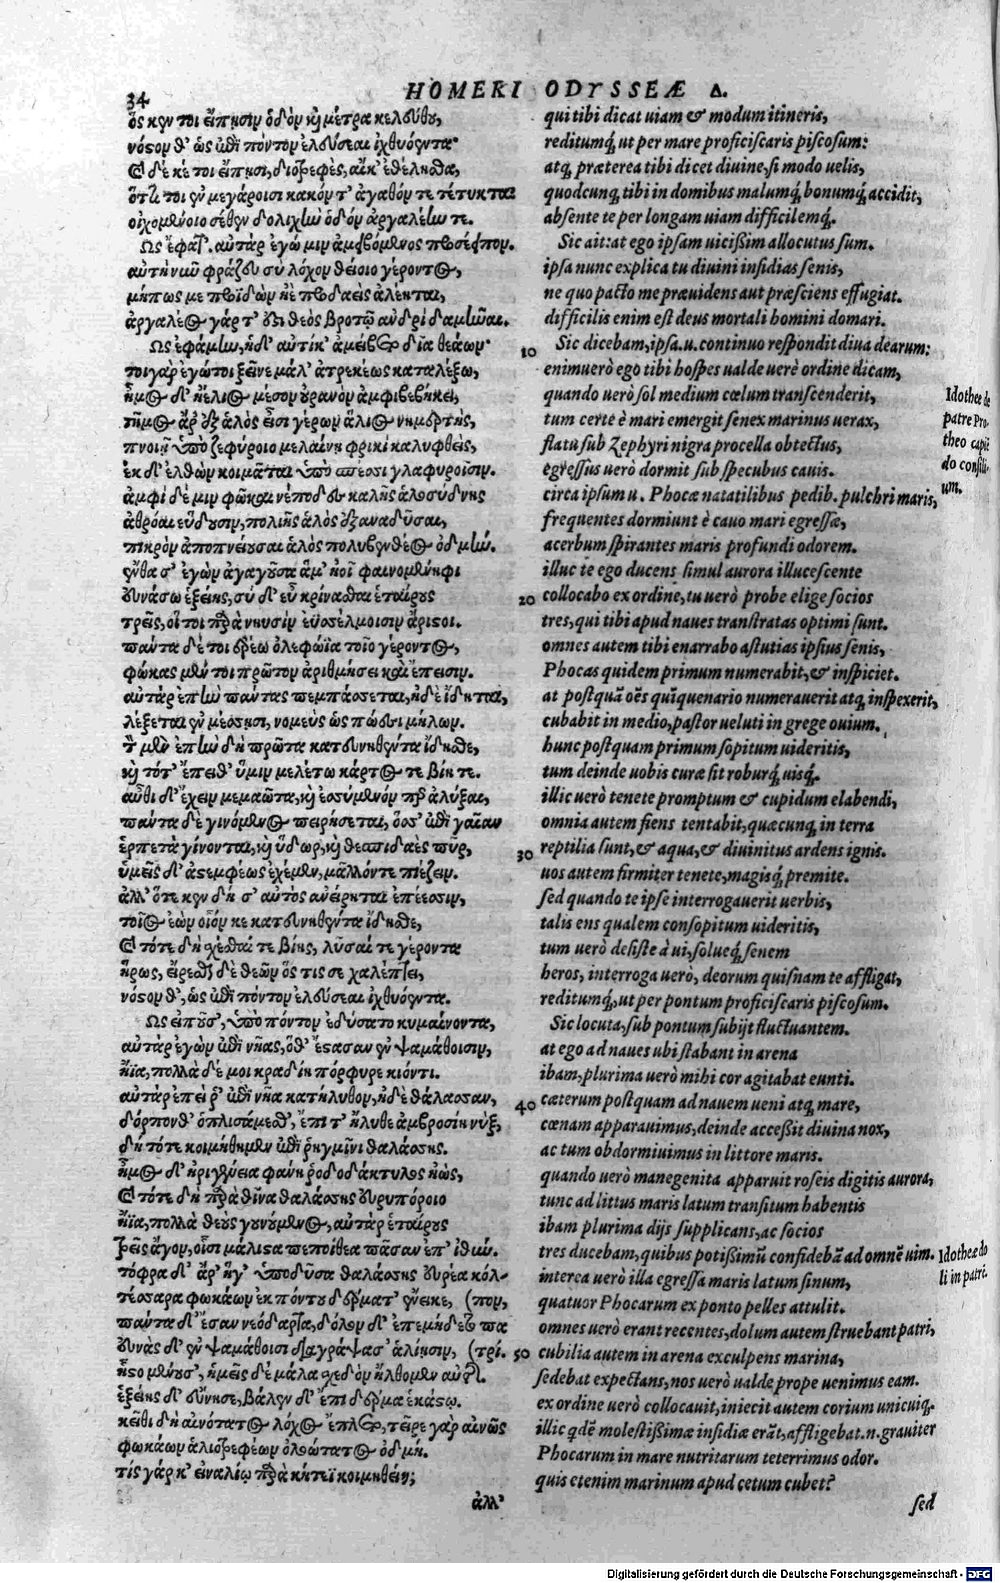 34
HOMERI ODYSSEÆ Δ.
ὅς κεν τοι εἴπῃσιν ὁδὸν καὶ μέτρα κελεύθου,
νόστον θ' ὡς ἐπὶ πόντον ἐλεύσεαι ἰχθυόεντα·
Καὶ δέ κέ τοι εἴπῃσι, διοτρεφὲς, αἴκ' ἐθέλησθα,
ὅττι τοι ἐν μεγάροισι κακόν τ' ἀγαθόν τε τέτυκται
οἰχομένοιο σέθεν δολιχὴν ὁδὸν ἀργαλέην τε.
Ως ἔφατ'. αὐτὰρ ἐγώ μιν ἀμειβόμενος προσέειπον.
αὐτὴ νῦν φράζευ σὺ λόχον θείοιο γέροντος,
μήπως με προϊδὼν ἠὲ προδαεὶς ἀλέηται,
ἀργαλέος γάρ τ' ἐστὶ θεὸς βροτῷ ἀνδρὶ δαμῆναι.
Ως ἐφάμην, ἡ δ' αὐτίκ' ἀμείβετο δῖα θεάων·
τοιγὰρ ἐγώ τοι ξεῖνε μάλ' ἀτρεκέως καταλέξω,
ἦμος δ' ἠέλιος μέσον οὐρανὸν ἀμφιβεβήκει,
τῆμος ἄρ' ἐξ ἁλὸς εἶσι γέρων ἅλιος νημερτὴς,
πνοιῇ ὑπὸ ζεφύροιο μελαίνῃ φρικὶ καλυφθεὶς,
ἐκ δ' ἐλθὼν κοιμᾶται ὑπὸ σπέσσι γλαφυροῖσιν.
ἀμφὶ δέ μιν φῶκαι νέποδες καλῆς ἁλοσύδνης
ἀθρόαι εὕδουσιν, πολιῆς ἁλὸς ἐξαναδῦσαι,
πικρὸν ἀποπνείουσαι ἁλὸς πολυβενθέος ὀδμήν.
ἔνθα σ' ἐγὼν ἀγαγοῦσα ἅμ' ἠοῖ φαινομένηφι
εὐνάσω ἑξείης, σὺ δ' εὖ κρίνασθαι ἑταίρους
τρεῖς, οἵ τοι παρὰ νηυσὶν ἐϋσσέλμοισιν ἄριστοι.
πάντα δέ τοι ἐρέω ὀλοφώϊα τοῖο γέροντος,
φώκας μέν τοι πρῶτον ἀριθμήσει καὶ ἔπεισιν.
αὐτὰρ ἐπὴν πάντας πεμπάσσεται, ἠδὲ ἴδηται,
λέξεται ἐν μέσσῃσι, νομεὺς ὡς πώεσι μήλων.
τὸν μὲν ἐπὴν δὴ πρῶτα κατευνηθέντα ἴδησθε,
καὶ τότ' ἔπειθ' ὕμιν μελέτω κάρτος τε βίη τε.
αὖθι δ' ἔχειν μεμαῶτα, καὶ ἐσσύμενόν περ ἀλύξαι,
πάντα δὲ γινόμενος πειρήσεται, ὅσσ' ἐπὶ γαῖαν
ἑρπετὰ γίνονται, καὶ ὕδωρ, καὶ θεσπιδαὲς πῦρ,
ὑμεῖς δ' ἀστεμφέως ἐχέμεν, μᾶλλόν τε πιέζειν.
ἀλλ' ὅτε κεν δή σ' αὐτὸς ἀνείρηται ἐπέεσσιν,
τοῖος ἐὼν οἷόν κε κατευνηθέντα ἴδησθε,
Καὶ τότε δὴ σχέσθαι τε βίης, λῦσαί τε γέροντα
ἥρως, εἴρεσθαι δὲ θεῶν ὅς τις σε χαλέπτει,
νόστον θ', ὡς ἐπὶ πόντον ἐλεύσεαι ἰχθυόεντα.
Ως εἰποῦσ', ὑπὸ πόντον ἐδύσατο κυμαίνοντα,
αὐτὰρ ἐγὼν ἐπὶ νῆας, ὅθ' ἕστασαν ἐν ψαμάθοισιν,
ἤϊα, πολλὰ δέ μοι κραδίη πόρφυρε κιόντι.
αὐτὰρ ἐπεί ῥ' ἐπὶ νῆα κατήλυθον, ἠδὲ θάλασσαν,
δόρπον θ' ὁπλισάμεσθ', ἐπί τ' ἤλυθε ἀμβροσίη νὺξ,
δὴ τότε κοιμήθημεν ἐπὶ ῥηγμῖνι θαλάσσης.
ἦμος δ' ἠριγένεια φάνη ῥοδοδάκτυλος ἠὼς,
Καὶ τότε δὴ παρὰ θῖνα θαλάσσης εὐρυπόροιο
ἤϊα, πολλὰ θεοὺς γουνούμενος, αὐτὰρ ἑταίρους
τρεῖς ἄγον, οἷσι μάλιστα πεποίθεα πᾶσαν ἐπ' ἰθύν.
τόφρα δ' ἄρ' ἥγ' ὑποδῦσα θαλάσσης εὐρέα κόλ-
τέσσαρα φωκάων ἐκ πόντου δέρματ' ἔνεικε, (πον,
πάντα δ' ἔσαν νεόδαρτα, δόλον δ' ἐπεμήδετο πα
εὐνὰς δ' ἐν ψαμάθοισι διαγράψασ' ἁλίῃσιν, (τρί.
ἧστο μένουσ', ἡμεῖς δὲ μάλα σχεδὸν ἤλθομεν αὐτῆς.
ἑξείης δ' εὔνησε, βάλεν δ' ἐπὶ δέρμα ἑκάστῳ.
κεῖθι δὴ αἰνότατος λόχος ἔπλετο, τεῖρε γὰρ αἰνῶς
φωκάων ἁλιοτρεφέων ὀλοώτατος ὀδμή.
τίς γάρ κ' εἰναλίῳ παρὰ κήτεϊ κοιμηθείη;
ἀλλ'
qui tibi dicat uiam & modum itineris,
reditumq́, ut per mare proficiscaris piscosum:
atq, præterea tibi dicet diuine, si modo uelis,
quodcunq, tibi in domibus malumq́, bonumq́, accidit,
absente te per longam uiam difficilemq́,.
Sic ait: at ego ipsam uicißim allocutus sum.
ipsa nunc explica tu diuini insidias senis,
ne quo pacto me præuidens aut præsciens effugiat.
difficilis enim est deus mortali homini domari.
10 Sic dicebam, ipsa.u. continuo respondit diua dearum:
enimuerò ego tibi hospes ualde uerè ordine dicam,
quando uerò sol medium cœlum transcenderit,
tum certe è mari emergit senex marinus uerax,
flatu sub Zephyri nigra procella obtectus,
egressus uerò dormit sub specubus cauis.
circa ipsum u. Phocæ natatilibus pedib. pulchri maris,
frequentes dormiunt è cauo mari egressæ,
acerbum spirantes maris profundi odorem.
illuc te ego ducens simul aurora illucescente
20 collocabo ex ordine, tu uerò probe elige socios
tres, qui tibi apud naues transtratas optimi sunt.
omnes autem tibi enarrabo astutias ipsius senis,
Phocas quidem primum numerabit, & inspiciet.
at postquã oẽs quĩquenario numerauerit atq, inspexerit,
cubabit in medio, pastor ueluti in grege ouium.
hunc postquam primum sopitum uideritis,
tum deinde uobis curæ sit roburq́, uisq́,.
illic uerò tenete promptum & cupidum elabendi,
omnia autem fiens tentabit, quæcunq, in terra
30 reptilia sunt, & aqua, & diuinitus ardens ignis.
uos autem firmiter tenete, magisq́, premite.
sed quando te ipse interrogauerit uerbis,
talis ens qualem consopitum uideritis,
tum uerò desiste à ui, solueq́, senem
heros, interroga uerò, deorum quisnam te affligat,
reditumq́,, ut per pontum proficiscaris piscosum.
Sic locuta, sub pontum subijt fluctuantem.
at ego ad naues ubi stabant in arena
ibam, plurima uerò mihi cor agitabat eunti.
40 cæterum postquam ad nauem ueni atq, mare,
cœnam apparauimus, deinde acceßit diuina nox,
ac tum obdormiuimus in littore maris.
quando uerò manegenita apparuit roseis digitis aurora,
tunc ad littus maris latum transitum habentis
ibam plurima dijs supplicans, ac socios
tres ducebam, quibus potißimũ confidebã ad omnẽ uim.
interea uerò illa egressa maris latum sinum,
quatuor Phocarum ex ponto pelles attulit.
omnes uerò erant recentes, dolum autem struebant patri,
50 cubilia autem in arena exculpens marina,
sedebat expectans, nos uerò ualde prope uenimus eam.
ex ordine uerò collocauit, iniecit autem corium unicuiq,.
illic q̃dẽ molestißimæ insidiæ erãt, affligebat.n. grauiter
Phocarum in mare nutritarum teterrimus odor.
quis etenim marinum apud cetum cubet?
sed
Idotheæ de
patre Pro-
theo capiẽ
do consili-
um.
Idotheæ do
li in patrẽ.
Digitalisierung gefördert durch die Deutsche Forschungsgemeinschaft - DFG